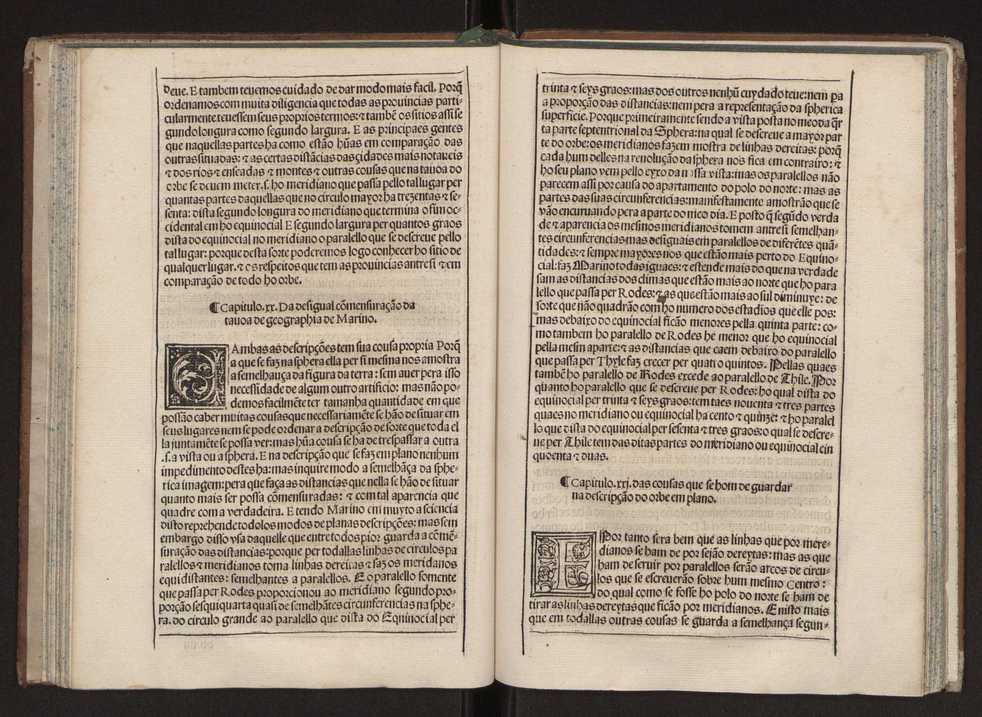 deue. E tambem teuemos cuidado de dar modo mais facil. Porq̃
ordenamos com muita diligencia que todas as prouincias parti-
cularmente teuessem seus proprios termos: ⁊ tambẽ os sitios assi se
gundo longura como segundo largura. E as principaes gentes
que naquellas partes ha como estão hũas em comparação das
outras situadas: ⁊ as certas distãcias das çidades mais notaueis
⁊ dos rios ⁊ enseadas ⁊ montes ⁊ outras cousas que na tauoa do
orbe se deuem meter. s. ho meridiano que passa pello tal lugar per
quantas partes daquellas que no circulo mayor ha trezentas ⁊ se-
senta: dista segundo longura do meridiano que termina o fim oc-
cidental em ho equinocial E segundo largura per quantos graos
dista do equinocial no meridiano o parallelo que se descreue pello
tal lugar: porque desta sorte poderemos logo conhecer ho sitio de
qualquer lugar. ⁊ os respeitos que tem as prouincias antresi ⁊ em
comparação de todo ho orbe.
¶ Capitulo. xx. Da desigual cõmensuração da
tauoa de geographia de Marino.
AMbas as descripções tem sua cousa propria Porq̃
a que se faz na sphera ella per si mesma nos amostra
a semelhança da figura da terra: sem auer pera isso
necessidade de algum outro artificio: mas não po-
demos facilmẽte ter tamanha quantidade em que
possão caber muitas cousas que necessariamẽte se hão de situar em
seus lugares nem se pode ordenar a descripção de sorte que toda el
la juntamẽte se possa ver: mas hũa cousa se ha de trespassar a outra
.s. a vista ou a sphera. E na descripção que se faz em plano nenhum
impedimento destes ha: mas inquire modo a semelhãça da sphe-
rica imagem: pera que faça as distancias que nella se hão de situar
quanto mais ser possa cõmensuradas: ⁊ com tal aparencia que
quadre com a verdadeira. E tendo Marino em muyto a sciencia
disto reprehende todolos modos de planas descripções: mas sem
embargo disso vsa daquelle que entre todos pior guarda a cõmẽ-
suração das distancias: porque per todallas linhas de circulos pa
rallelos ⁊ meridianos toma linhas dereitas ⁊ faz os meridanos
equidistantes: semelhantes a parallelos. E o parallelo somente
que passa per Rodes proporcionou ao meridiano segundo pro-
porção sesquiquarta quasi de semelhãtes circunferencias na sphe-
ra. do circulo grande ao parallelo que dista do Equinocial per
trinta ⁊ seys graos: mas dos outros nenhũ cuydado teue: nem pa
a proporção das distancias: nem pera a representação da spherica
superficie. Porque primeiramente sendo a vista posta no meo da q̃r
ta parte septentrional da Sphera: na qual se descreue a mayor par
te do orbe: os meridianos fazem mostra de linhas dereitas: porq̃
cada hum delles na reuolução da sphera nos fica em contrairo: ⁊
ho seu plano vem pello exto da nossa vista: mas os parallelos não
parecem assi por causa do apartamento do polo do norte: mas as
partes das suas circunferencias: manifestamente amostrão que se
vão encuruando pera a parte do meo dia. E posto q̃ segũdo verda
de ⁊ aparencia os mesmos meridianos tomem antresi semelhan-
tes circunferencias: mas desiguais em parallelos de diferẽtes quã-
tidades: ⁊ sempre mayores nos que estão mais perto do Equino-
cial: faz Marino todas iguaes: ⁊ estende mais do que na verdade
sam as distancias dos climas que estão mais ao norte que ho para
lello que passa per Rodes: ⁊ as que estão mais ao sul diminuye: de
sorte que não quadrão com ho numero dos estadios que elle pos:
mas debaixo do equinocial ficão menores pella quinta parte: co-
mo tambem ho parallelo de Rodes he menor que ho equinocial
pella mesm aparte: ⁊ as distancias que caem debaixo do parallelo
que passa per Thyle faz crecer per quatro quintos. Pellas quaes
tambẽ ho parallelo de Rodes excede ao parallelo de Thile. Por
quanto ho parallelo que se descreue per Rodes: ho qual dista do
equinocial per trinta ⁊ seys graos: tem taes nouenta ⁊ tres partes
quaes no meridiano ou equinocial ha cento ⁊ quinze: ⁊ ho paralel
lo que dista do equinocial per sesenta ⁊ tres graos: o qual se descre-
ue per Thile tem das ditas partes do meridiano ou equinocial cin
quoenta ⁊ duas.
¶ Capitulo. xxj. das cousas que se hom de guardar
na descripção do orbe em plano.
POr tanto sera bem que as linhas que por mere-
dianos se ham de por sejão dereytas: mas as que
ham de seruir por parallelos serão arcos de circu-
los que se escreuerão sobre hum mesmo Centro:
do qual como se fosse ho polo do norte se ham de
tirar as linhas dereytas que ficão por meridianos. E nisto mais
que em todallas outras cousas se guarda a semelhança segun-